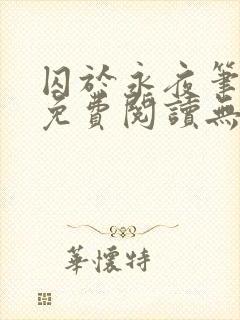 囚於永夜筆
免費閱讀無
華懷特